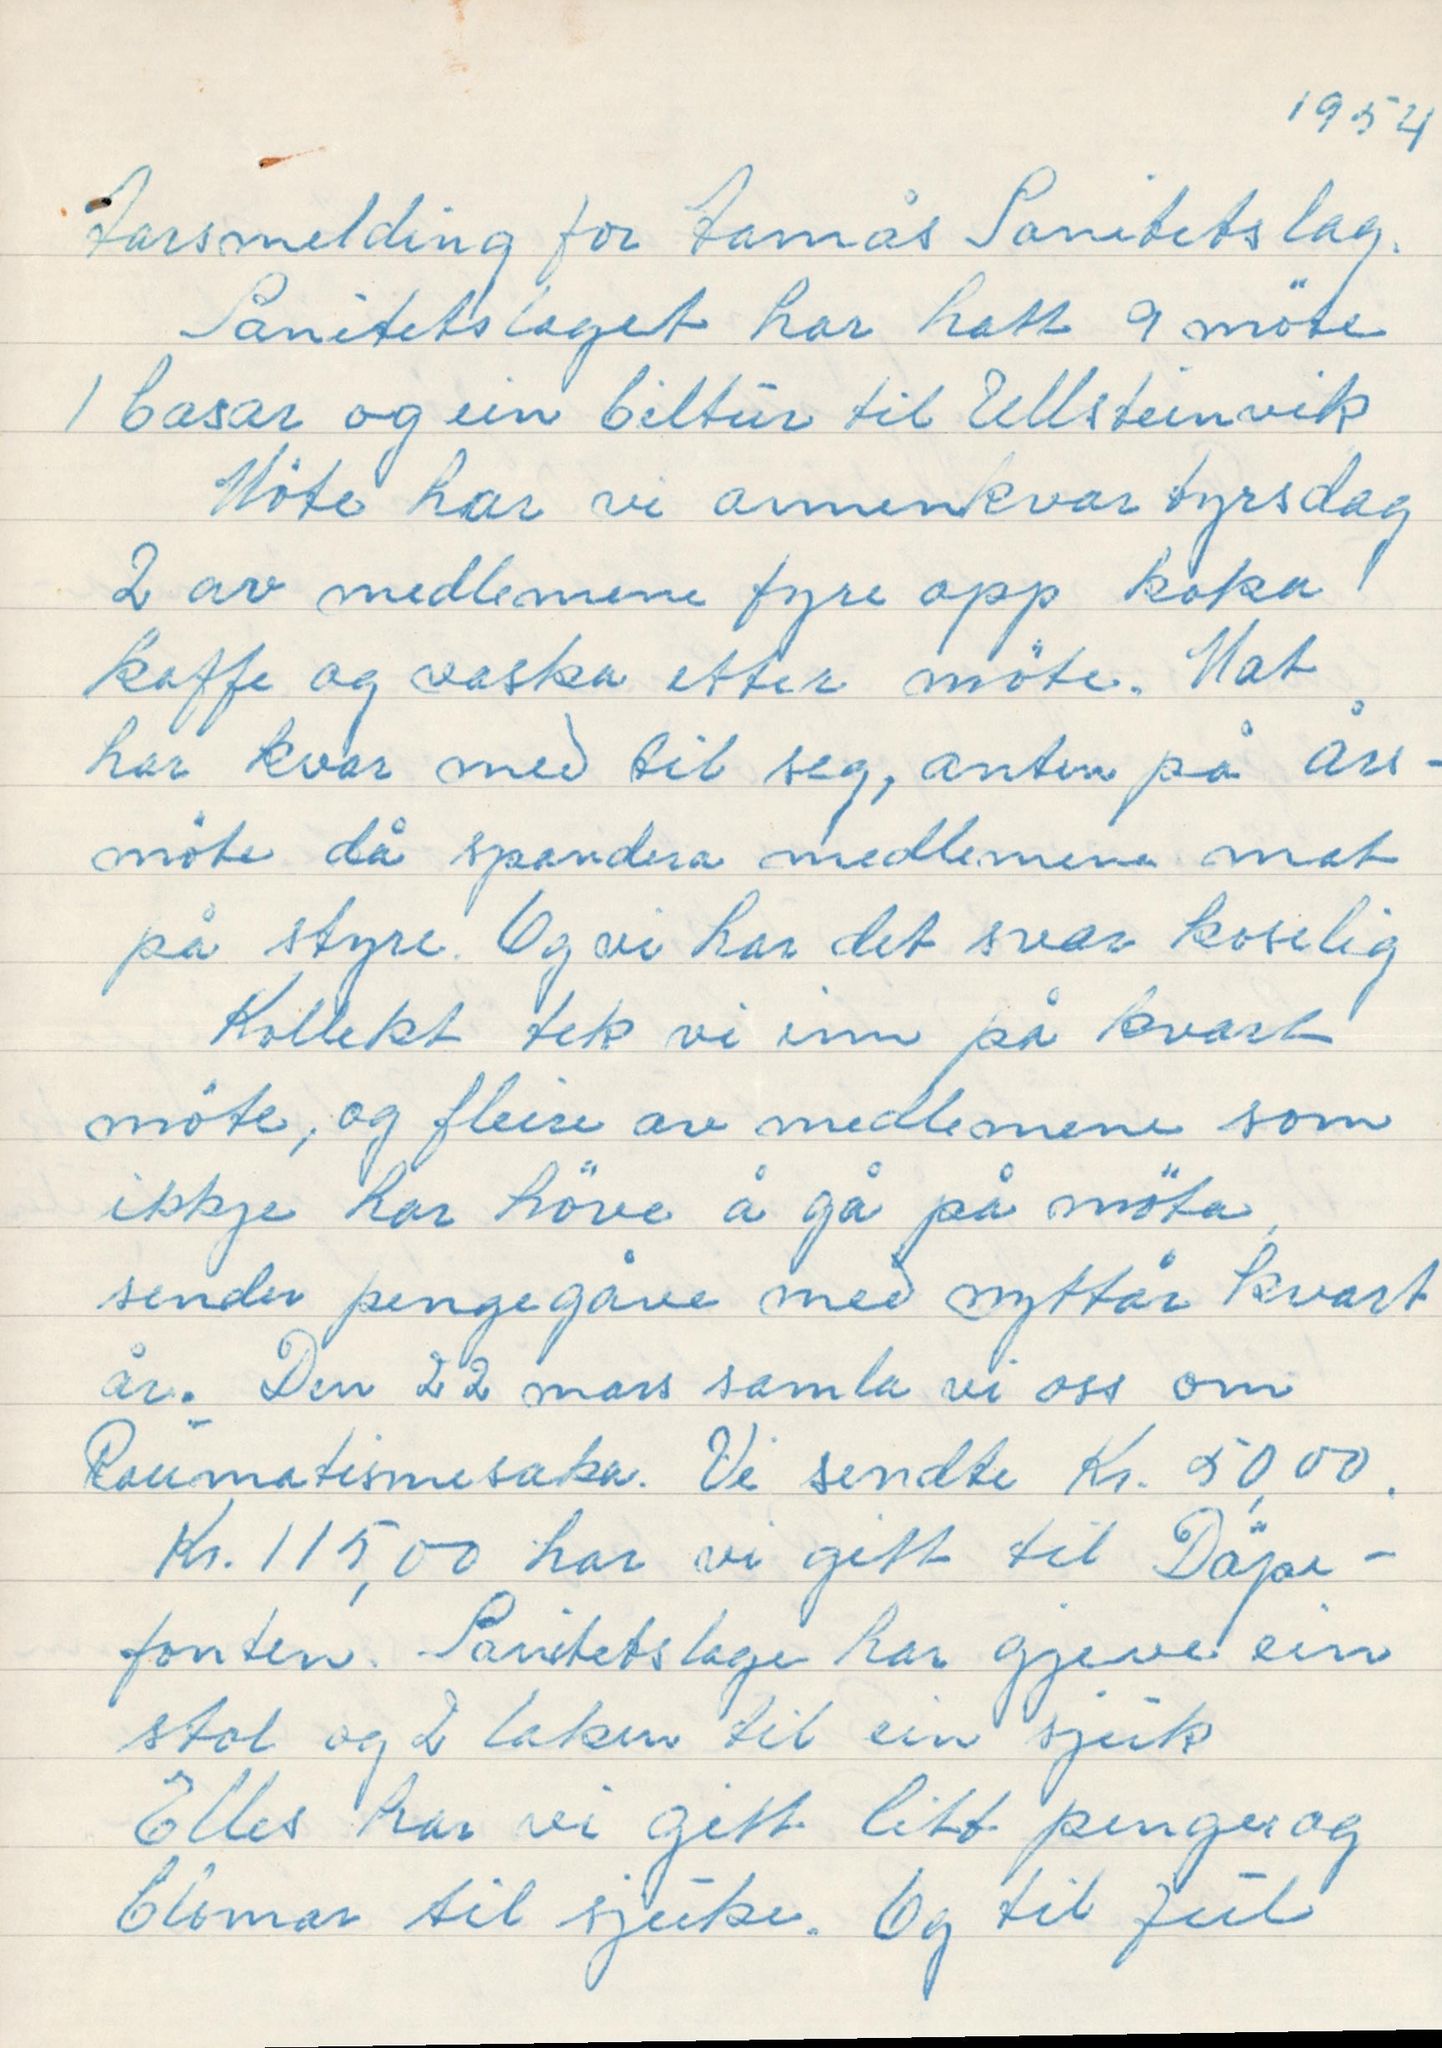 1954
Aarsmelding for Aamås Sanitetslag.
Sanitetslaget har hatt 9 möte
1 basar og ein biltur til Ullsteinvik
Möte har vi annenkvar tyrsdag
2 av medlemene fyre opp koka
kaffe og vaska etter möte. Mat
har kvar med til seg, anten på års-
möte då spandera medlemene mat
på styre. Og vi har det svær koselig
Kollekt tek vi inn på kvart
möte, og fleire av medlemene som
ikkje har höve å gå på möta,
sender pengegåve med nyttår kvart
år. Den 22 mars samla vi oss om
Raumatismesaka. Vi sendte Kr. 50,00.
Kr. 115,00 har vi gitt til Döpe-
fonten. Sanitetslage har gjeve ein
stol og 2 laken til ein sjuk
Elles har vi gitt litt penger og
blomar til sjuke. Og til jul